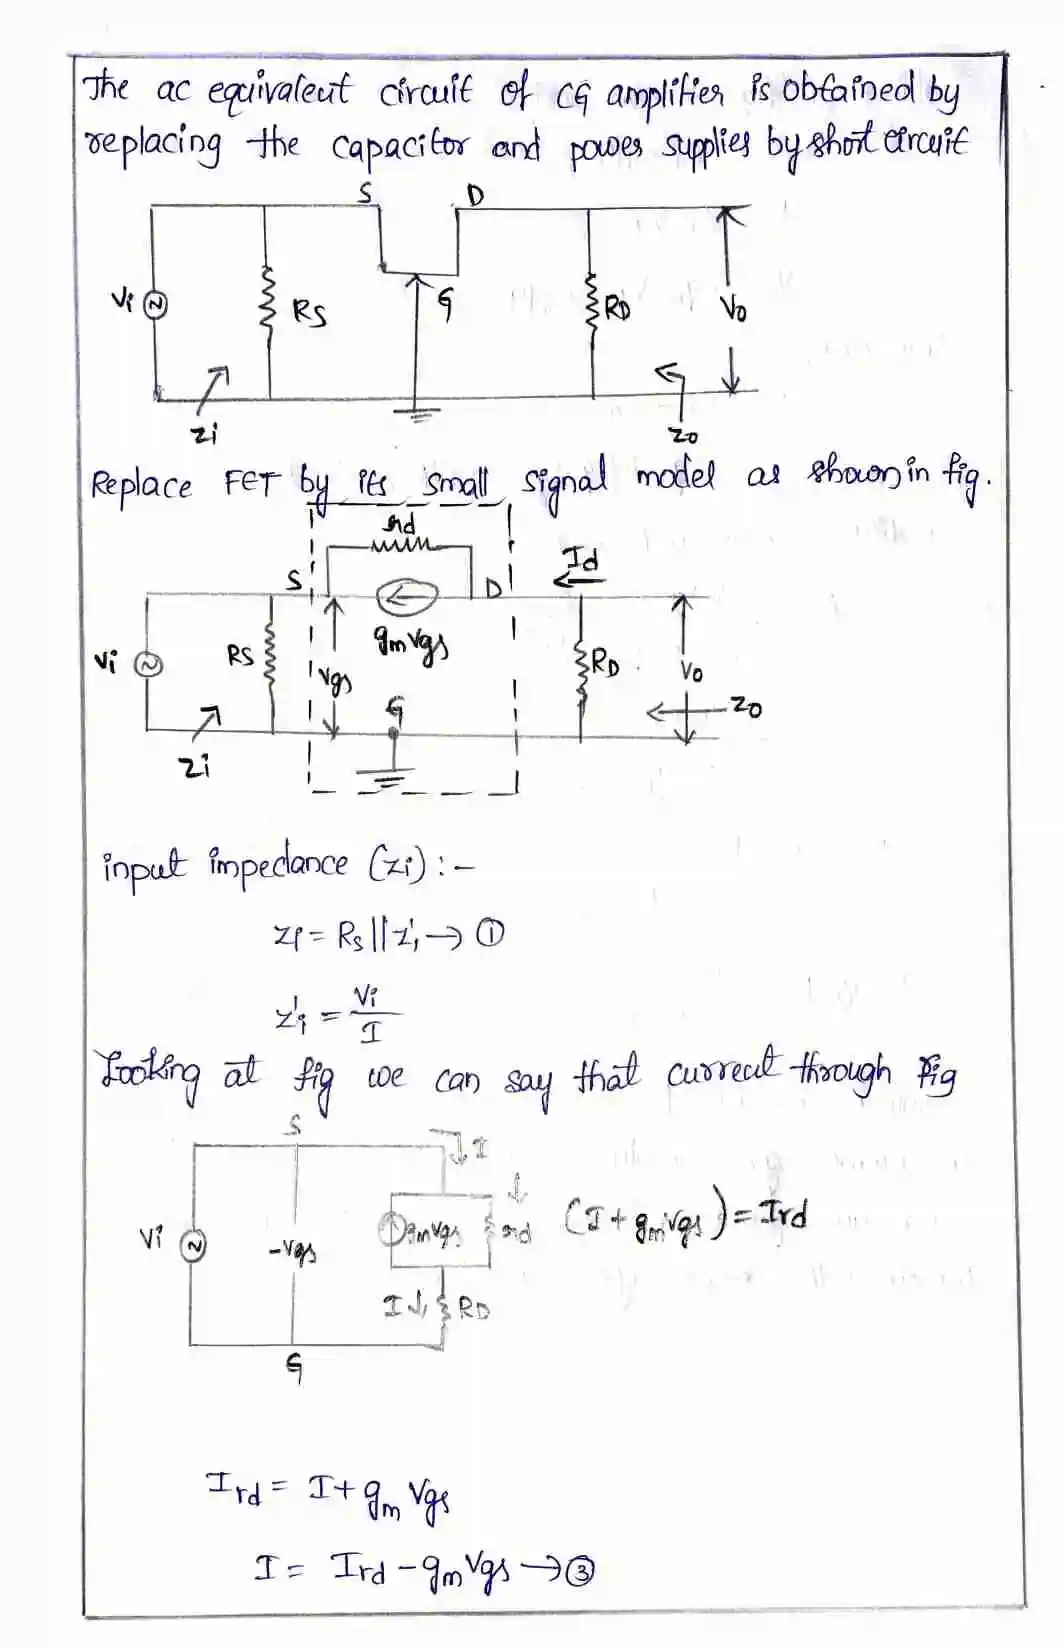 The ac equivalent circuit of CG amplifier is obtained by
replacing the capacitor and power supplies by short circuit
S D
Vi RS G RD Vo
Zi Zo
Replace FET by its small signal model as shown in fig.
rd
Id
S D
gmVgs
Vi RS Vgs RD Vo
G Zo
Zi
input impedance (Zi) :-
Zi = Rs || Z'i → ①
Z'i = Vi
I
Looking at fig we can say that current through fig
S
I
Vi -Vgs gmVgs rd (I + gmVgs) = Ird
I RD
G
Ird = I + gm Vgs
I = Ird - gmVgs → ③